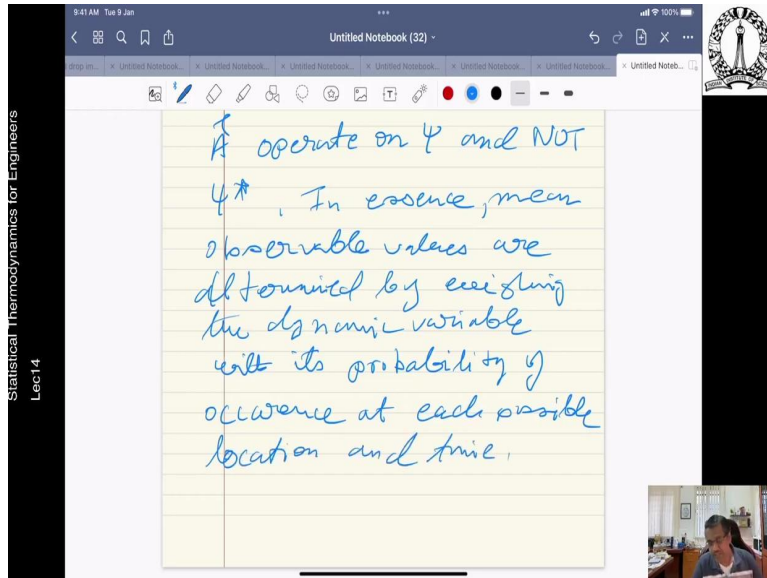 9:41 AM Tue 9 Jan
100%
Untitled Notebook (32)
drop im...
× Untitled Notebook...
× Untitled Notebook...
× Untitled Notebook...
× Untitled Notebook...
× Untitled Notebook...
× Untitled Noteb...
Statistical Thermodynamics for Engineers
Lec14
Â operate on Ψ and NOT
Ψ*. In essence, mean
observable values are
determined by weighing
the dynamic variable
with its probability of
occurence at each possible
location and time.